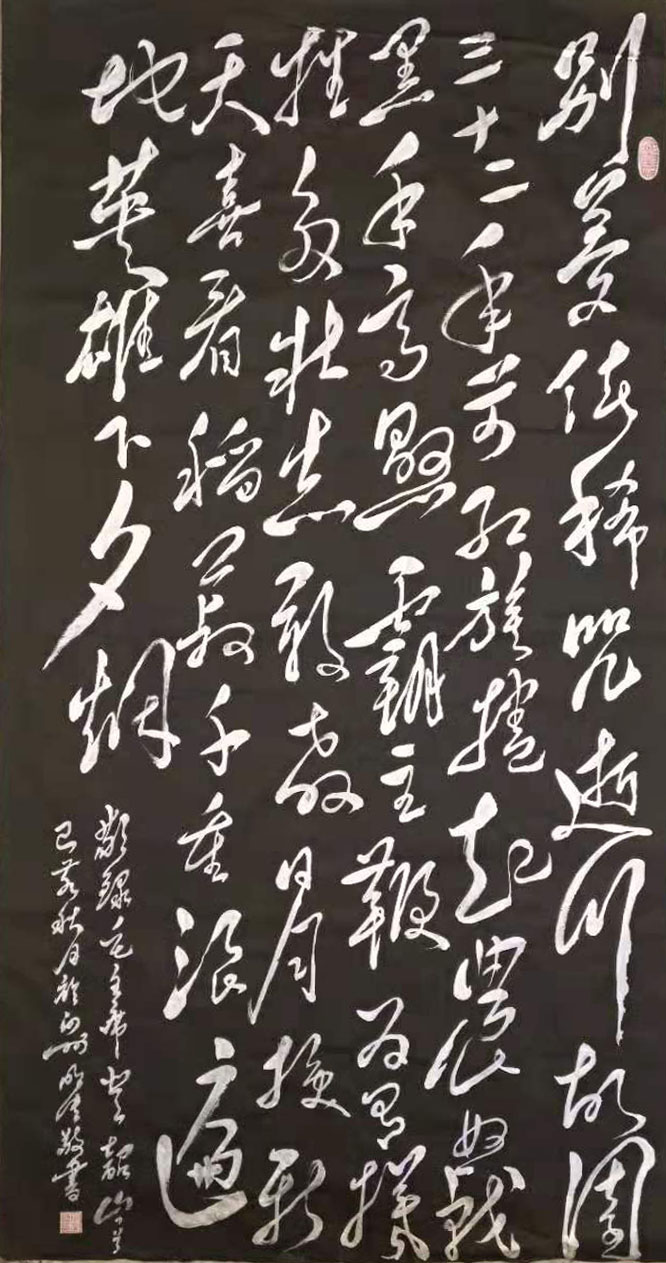 别夢依稀咒逝川故園
三十二年前红旗捲起農奴戟
黑手高懸霸主鞭为有犧
牲多壮志敢教日月换新
天喜看稻菽千重浪遍
地英雄下夕烟
敬録毛主席韶山
己亥秋月於敬書